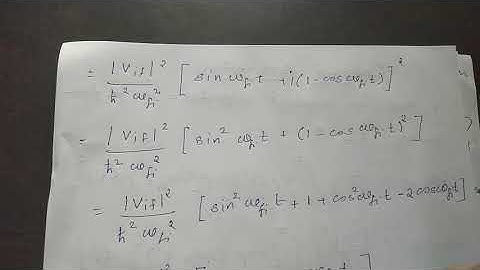 = |Vif|² / ħ² ωfi² [sin ωfi t + i(1 - cos ωfi t)]²
= |Vif|² / ħ² ωfi² [sin² ωfi t + (1 - cos ωfi t)²]
= |Vif|² / ħ² ωfi² [sin² ωfi t + 1 + cos² ωfi t - 2cos ωfi t]